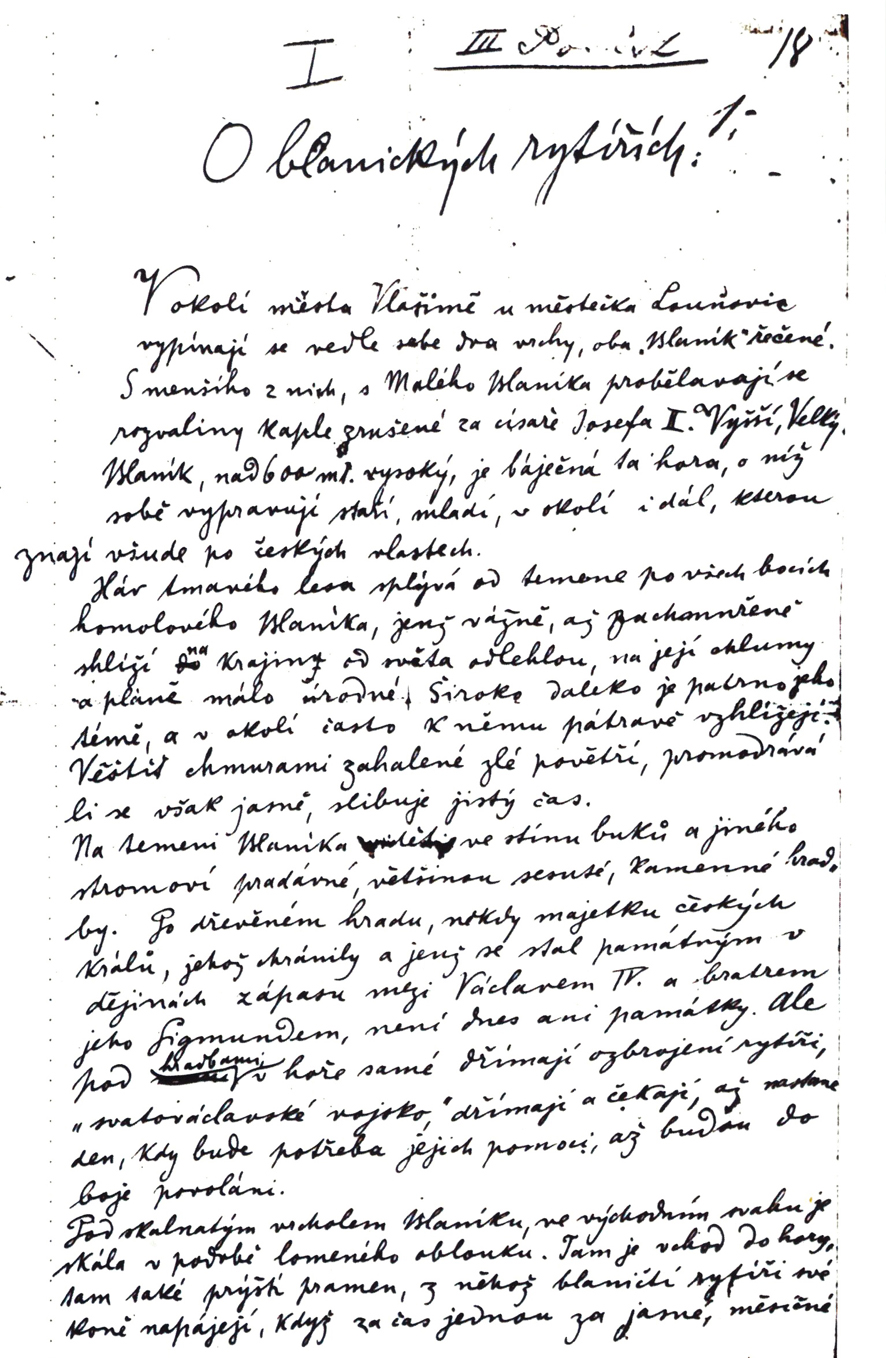 I III 18
O blanických rytířích: 1;
V okolí města Vlašimě u městečka Louňovic
vypínají se vedle sebe dva vrchy, oba „Blaník" řečené.
S menšího z nich, s Malého Blaníka probělavají se
rozvaliny kaple zrušené za císaře Josefa II. Vyšší, Velký
Blaník, nad 600 m. vysoký, je báječná ta hora, o níž
sobě vypravují staří, mladí, v okolí i dál, kterou
znají všude po českých vlastech.
Háv tmavého lesa splývá od temene po všech bocích
homolového Blaníka, jenž vážně, až zachmuřeně
shlíží na krajiny od světa odlehlou, na její chlumy
a pláně málo úrodné. Široko daleko je patrno jeho
témě, a v okolí často k němu pátravě vzhlížejí:
Věštíť chmurami zahalené zlé povětří, promodrává
li se však jasně, slibuje jistý čas.
Na temeni Blaníka ve stínu buků a jiného
stromoví pradávné, většinou sesuté, kamenné hrad-
by. Po dřevěném hradu, někdy majetku českých
králů, jehož chránily a jenž se stal památným v
dějinách zápasu mezi Václavem IV. a bratrem
jeho Sigmundem, není dnes ani památky. Ale
pod hradbami, v hoře samé dřímají ozbrojení rytíři,
„svatováclavské vojsko," dřímají a čekají, až nastane
den, kdy bude potřeba jejich pomoci, až budou do
boje povoláni.
Pod skalnatým vrcholem Blaníku, ve východním svahu je
skála v podobě lomeného oblouku. Tam je vchod do hory,
tam také prýští pramen, z něhož blaničtí rytíři své
koně napájejí, když za čas jednou za jasné, měsíčné